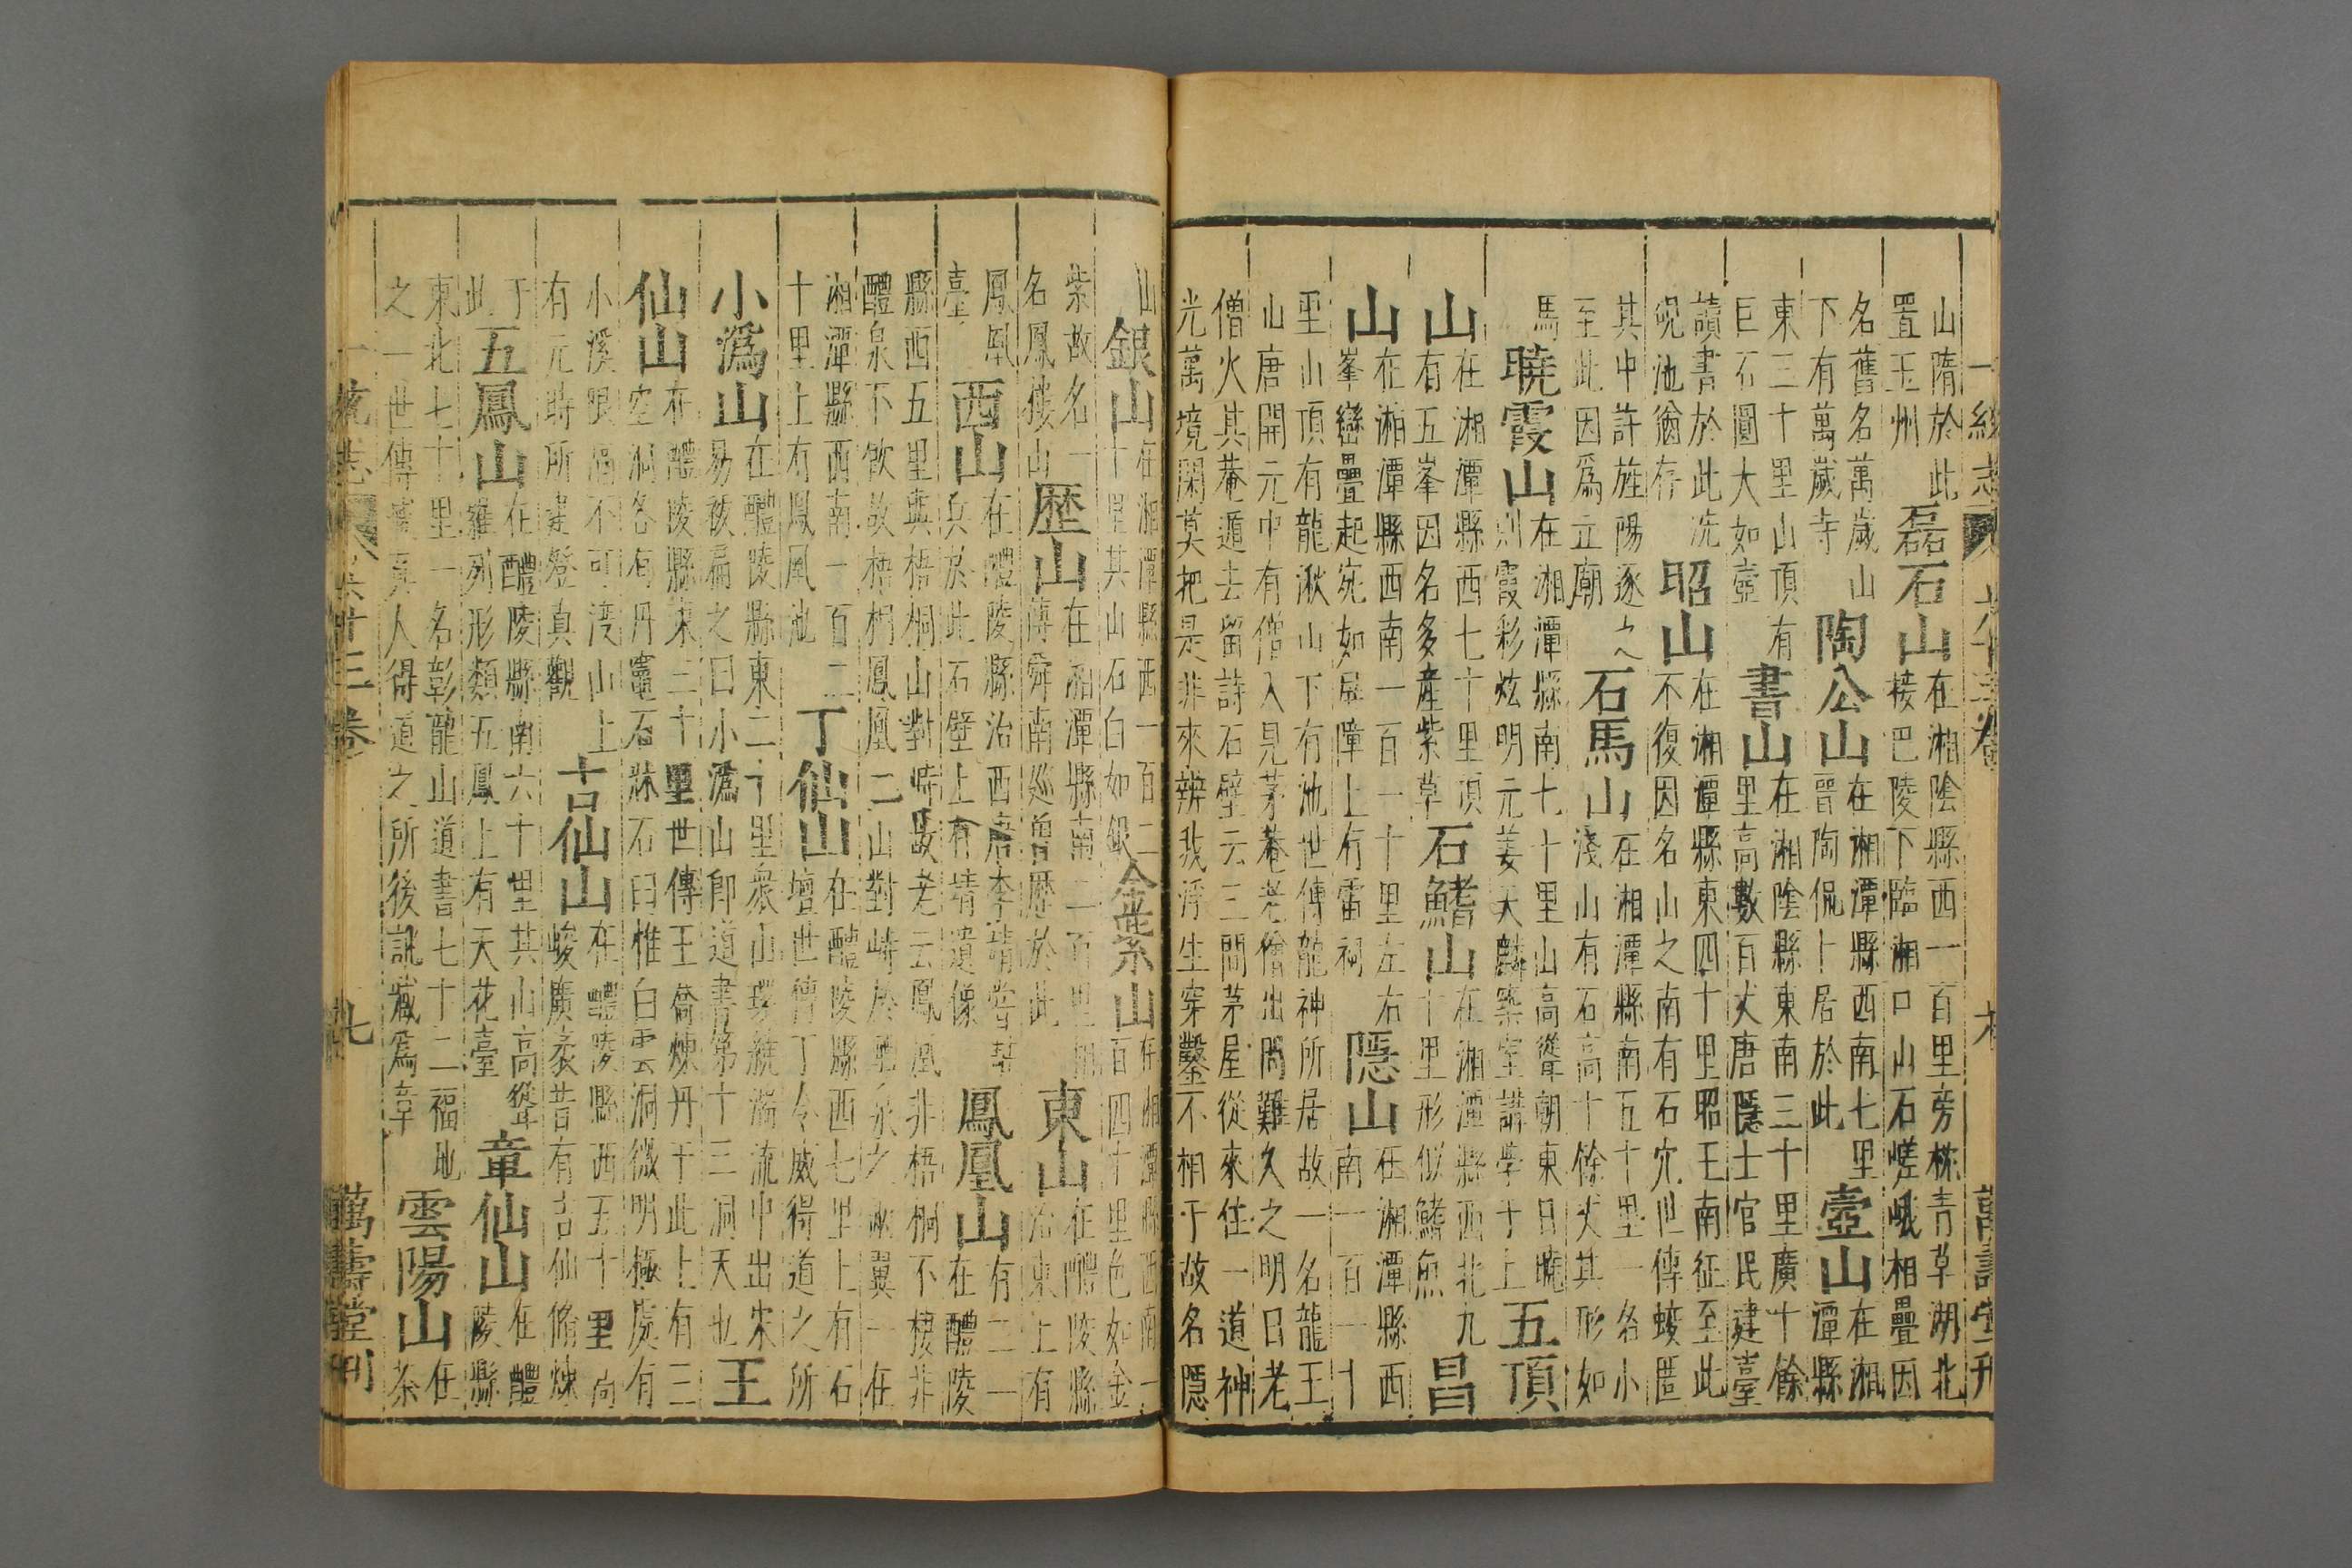 一統志
六十三卷
六
萬壽堂刊
山隋於此
置玉州
磊石山
在湘陰縣西一百里旁枕青草湖北
接巴陵下臨湘口山石嵯峨相疊因
名舊名萬歲山
下有萬歲寺
陶公山
在湘潭縣西南七里
晉陶侃卜居於此
壺山
在湘
潭縣
東三十里山頂有
巨石圓大如壺
書山
在湘陰縣東南三十里廣十餘
里高數百丈唐隱士官民建臺
讀書於此洗
硯池猶存
昭山
在湘潭縣東四十里昭王南征至此
不復因名山之南有石穴世傳蛟匿
其中許旌陽逐之
至此因爲立廟
石馬山
在湘潭縣南五十里一名小
淺山有石高十餘丈其形如
馬
曉霞山
在湘潭縣南七十里山高聳朝東日曉
則霞彩炫明元姜天麟築室講學于上
五頂
山
在湘潭縣西七十里頂
有五峯因名多產紫草
石鰭山
在湘潭縣西北九
十里形似鰭魚
昌
山
在湘潭縣西南一百一十里左右
峯巒疊起宛如屏障上有雷祠
隱山
在湘潭縣西
南一百一十
里山頂有龍湫山下有池世傳龍神所居故一名龍王
山唐開元中有僧入見茅菴老僧出問難久之明日老
僧火其菴遁去留詩石壁云三間茅屋從來住一道神
光萬境閑莫把是非來辨我浮生穿鑿不相干故名隱
山
銀山
在湘潭縣西一百二
十里其山石白如銀
金紫山
在湘潭縣西南一
百四十里色如金
紫故名一
名鳳棲山
歷山
在湘潭縣南二百里相
傳舜南巡曾歷於此
東山
在醴陵縣
治東上有
鳳凰
臺
西山
在醴陵縣治西唐李靖嘗駐
兵於此石壁上有靖遺像
鳳凰山
有二一
在醴陵
縣西五里與梧桐山對峙故老云鳳凰非梧桐不棲非
醴泉不飲故梧桐鳳凰二山對峙於醴泉之兩翼一在
湘潭縣西南一百二
十里上有鳳凰池
丁仙山
在醴陵縣西七里上有石
壇世傳丁令威得道之所
小潙山
在醴陵縣東二十里衆山環繞潙流中出宋
易祓扁之曰小潙山卽道書第十三洞天也
王
仙山
在醴陵縣東三十里世傳王喬煉丹于此上有三
空洞各有丹竈石牀石臼惟白雲洞微明極處有
小溪限隔不可渡山上
有元時所建登真觀
古仙山
在醴陵縣西五十里高
峻廣袤昔有古仙脩煉
于
此
五鳳山
在醴陵縣南六十里其山高聳
羅列形類五鳳上有天花臺
章仙山
在醴
陵縣
東北七十里一名彰龍山道書七十二福地
之一世傳章真人得道之所後訛藏爲章
雲陽山
在
茶
一統志
六十三卷
七
萬壽堂刊